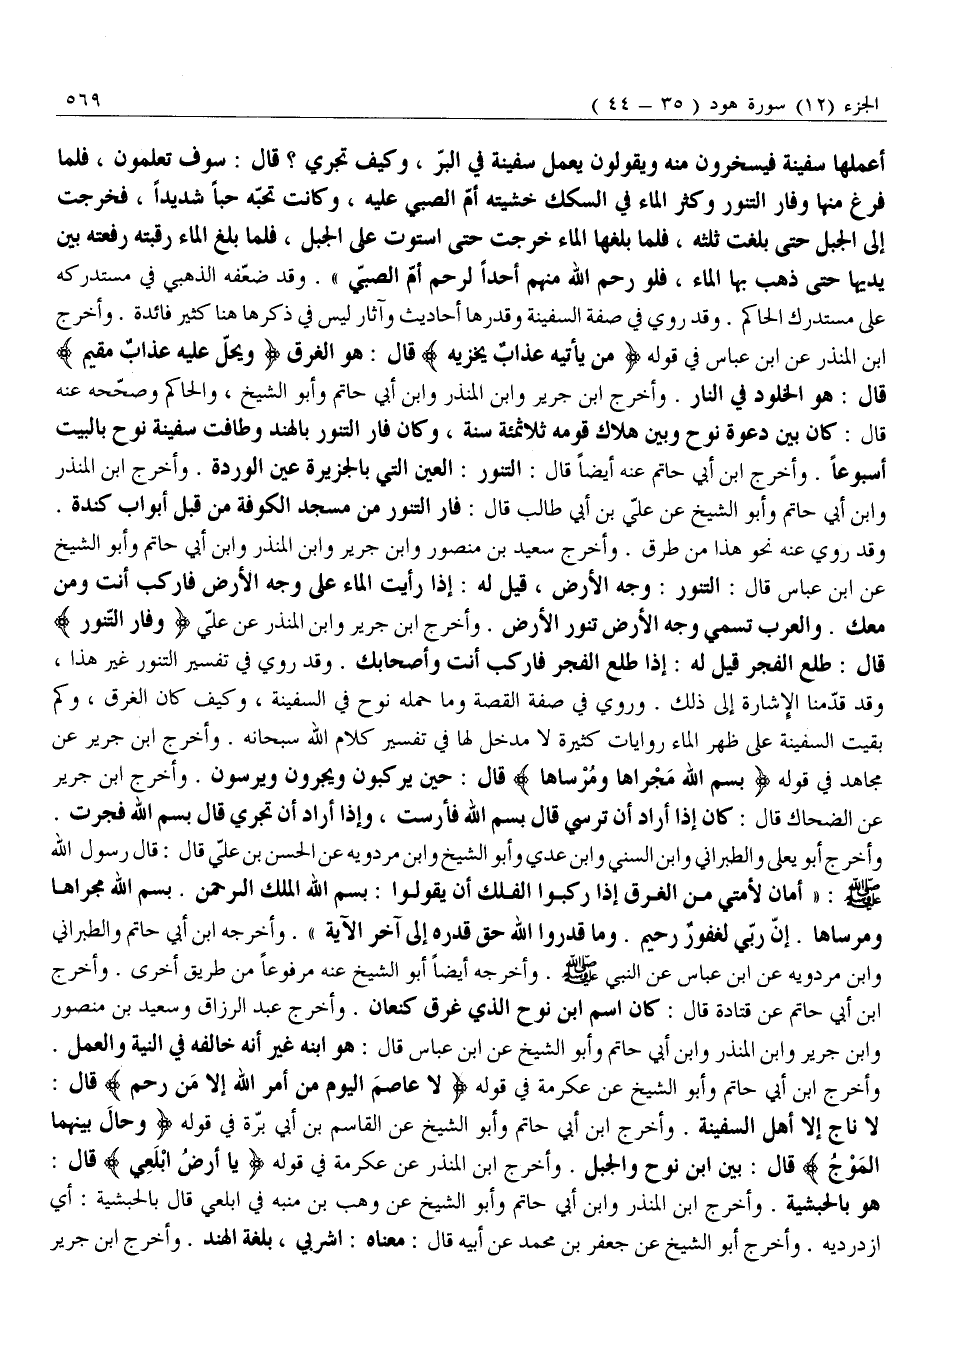 الجزء (١٢) سورة هود ( ٣٥ – ٤٤ )
٥٦٩
أعملها سفينة فيسخرون منه ويقولون يعمل سفينة في البرّ ، وكيف تجري ؟ قال : سوف تعلمون ، فلما
فرغ منها وفار التنور وكثر الماء في السكك خشيته أمّ الصبي عليه ، وكانت تحبّه حباً شديداً ، فخرجت
إلى الجبل حتى بلغت ثلثه ، فلما بلغها الماء خرجت حتى استوت على الجبل ، فلما بلغ الماء رقبته رفعته بين
يديها حتى ذهب بها الماء ، فلو رحم الله منهم أحداً لرحم أمّ الصبيّ » . وقد ضعّفه الذهبي في مستدركه
على مستدرك الحاكم . وقد روي في صفة السفينة وقدرها أحاديث وآثار ليس في ذكرها هنا كثير فائدة . وأخرج
ابن المنذر عن ابن عباس في قوله ﴿ من يأتيه عذابٌ يخزيه ﴾ قال : هو الغرق ﴿ ويحلّ عليه عذابٌ مقيم ﴾
قال : هو الخلود في النار . وأخرج ابن جرير وابن المنذر وابن أبي حاتم وأبو الشيخ ، والحاكم وصحّحه عنه
قال : كان بين دعوة نوح وبين هلاك قومه ثلاثمئة سنة ، وكان فار التنور بالهند وطافت سفينة نوح بالبيت
أسبوعاً . وأخرج ابن أبي حاتم عنه أيضاً قال : التنور : العين التي بالجزيرة عين الوردة . وأخرج ابن المنذر
وابن أبي حاتم وأبو الشيخ عن عليّ بن أبي طالب قال : فار التنور من مسجد الكوفة من قبل أبواب كندة .
وقد روي عنه نحو هذا من طرق . وأخرج سعيد بن منصور وابن جرير وابن المنذر وابن أبي حاتم وأبو الشيخ
عن ابن عباس قال : التنور : وجه الأرض ، قيل له : إذا رأيت الماء على وجه الأرض فاركب أنت ومن
معك . والعرب تسمي وجه الأرض تنور الأرض . وأخرج ابن جرير وابن المنذر عن عليّ ﴿ وفار التّنور ﴾
قال : طلع الفجر قيل له : إذا طلع الفجر فاركب أنت وأصحابك . وقد روي في تفسير التنور غير هذا ،
وقد قدّمنا الإشارة إلى ذلك . وروي في صفة القصة وما حمله نوح في السفينة ، وكيف كان الغرق ، وكم
بقيت السفينة على ظهر الماء روايات كثيرة لا مدخل لها في تفسير كلام الله سبحانه . وأخرج ابن جرير عن
مجاهد في قوله ﴿ بسم الله مَجْراها ومُرْساها ﴾ قال : حين يركبون ويجرون ويرسون . وأخرج ابن جرير
عن الضحاك قال : كان إذا أراد أن ترسي قال بسم الله فأرست ، وإذا أراد أن تجري قال بسم الله فجرت .
وأخرج أبو يعلى والطبراني وابن السني وابن عدي وأبو الشيخ وابن مردويه عن الحسن بن عليّ قال : قال رسول الله
ﷺ : « أمان لأمتي مـن الغرق إذا ركبـوا الفـلك أن يقولـوا : بسم الله الملك الرحمن . بسم الله مجراها
ومرساها . إنّ ربّي لغفورٌ رحيم . وما قدروا الله حق قدره إلى آخر الآية » . وأخرجه ابن أبي حاتم والطبراني
وابن مردويه عن ابن عباس عن النبي ﷺ . وأخرجه أيضاً أبو الشيخ عنه مرفوعاً من طريق أخرى . وأخرج
ابن أبي حاتم عن قتادة قال : كان اسم ابن نوح الذي غرق كنعان . وأخرج عبد الرزاق وسعيد بن منصور
وابن جرير وابن المنذر وابن أبي حاتم وأبو الشيخ عن ابن عباس قال : هو ابنه غير أنه خالفه في النية والعمل .
وأخرج ابن أبي حاتم وأبو الشيخ عن عكرمة في قوله ﴿ لا عاصمَ اليوم من أمر الله إلا مَن رحم ﴾ قال :
لا ناج إلا أهل السفينة . وأخرج ابن أبي حاتم وأبو الشيخ عن القاسم بن أبي برّة في قوله ﴿ وحالَ بينهما
المَوْجُ ﴾ قال : بين ابن نوح والجبل . وأخرج ابن المنذر عن عكرمة في قوله ﴿ يا أرضُ ابْلَعِي ﴾ قال :
هو بالحبشية . وأخرج ابن المنذر وابن أبي حاتم وأبو الشيخ عن وهب بن منبه في ابلعي قال بالحبشية : أي
ازدرديه . وأخرج أبو الشيخ عن جعفر بن محمد عن أبيه قال : معناه : اشربي ، بلغة الهند . وأخرج ابن جرير